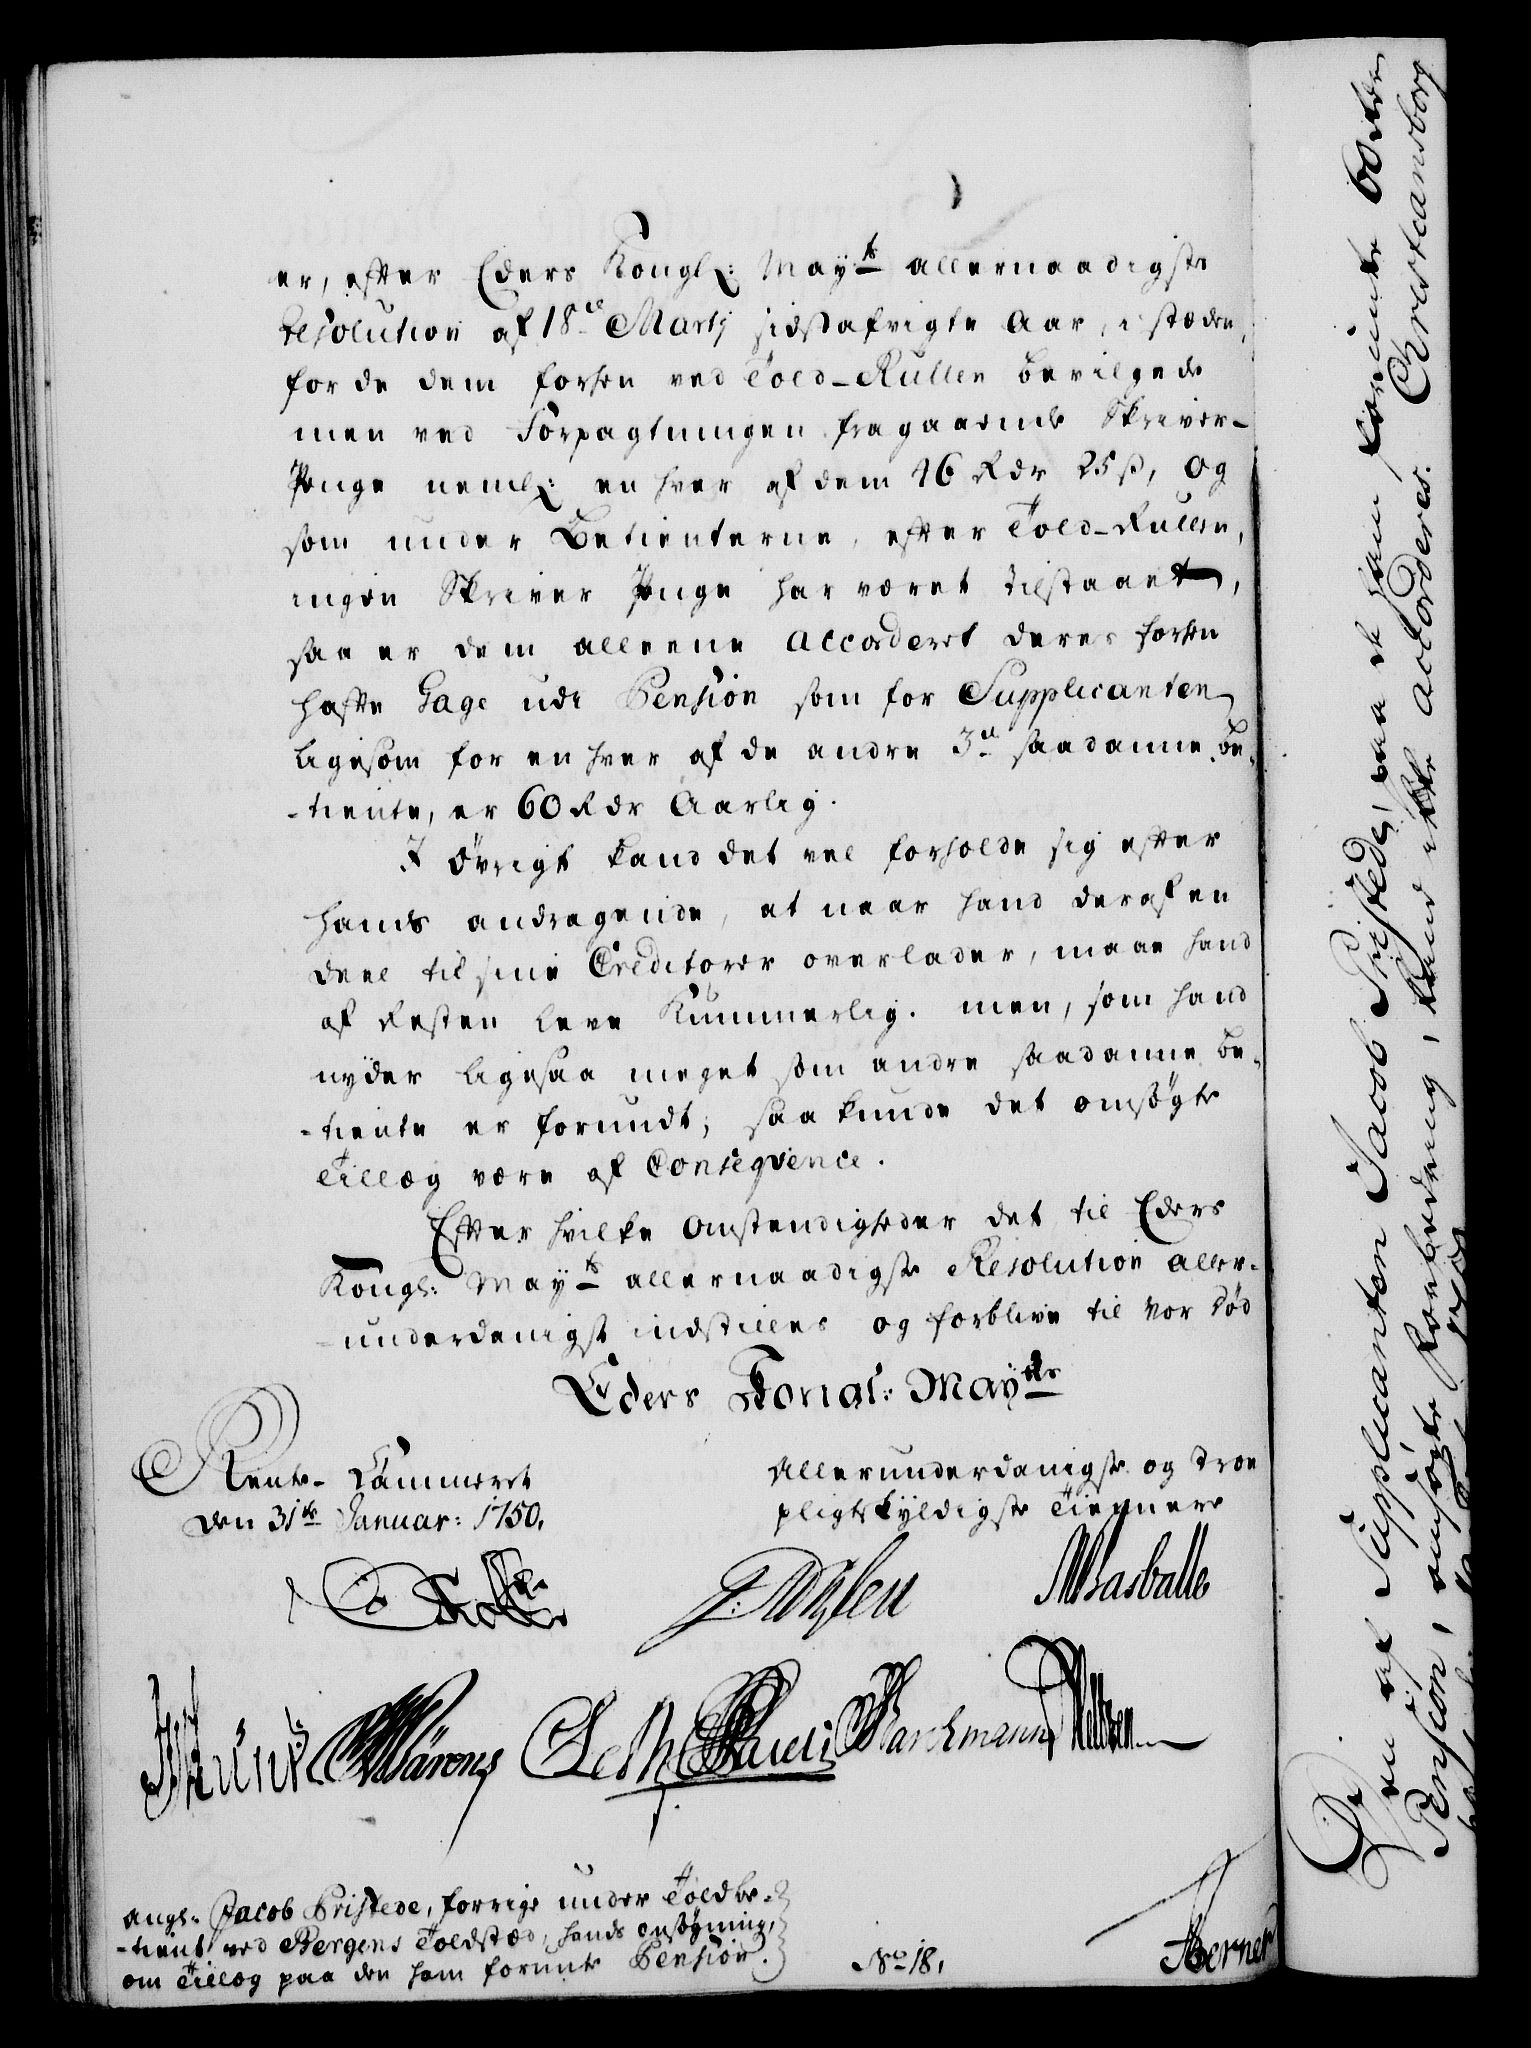 er, efter Eders Kongl: May:ts allernaadigste
Resolution af 18de Martj sidstafvigte Aar, i stæden
for de dem forhen ved Told-Rullen bevilgede
men ved Forpagtningen fragaaende Skriver-
Penge neml: en hver af dem 46 Rdr 25 ß, og
som under Betienterne, efter Told-Rullen,
ingen Skriver Penge har været tilstaaet,
saa er dem alleene accorderet deres forhen
hafte Gage udi Pension som for Supplicanten
ligesom for en hver af de andre 3de saadanne be-
-tiente, er 60 Rdr Aarlig.
I Övrigt kand det vel forholde sig efter
hands andragende, at naar hand deraf en
deel til sine Creditorer overlader, maae hand
af Resten leve Kummerlig. men, som hand
nyder ligesaa meget som andre saadanne be-
-tiente er forundt, saa kunde det omsögte
Tillæg være af Conseqvence.
Efter hvilke Omstendigheder det til Eders
Kongl: May:ts allernaadigste Resolution aller-
-underdanigst indstilles og forblive til vor död
Eders Kongl: Mayts
Rente-Cammeret
den 31te Januar: 1750.
Allerunderdanigste og troe
pligtskyldigste Tienere
JMBasballe
Marchmann
angl: Jacob Pristede, forrige under Toldbe-
-tient ved Bergens Toldsted, hands ansögning,
om Tillæg paa den ham forunte Pension.
No 18.
Berner
Den af Supplicanten Jacob Pristede, paa de ham forunte 60 Rdr
Pension, omsögte Forbedring, kand ikke accorderes. Christiansborg